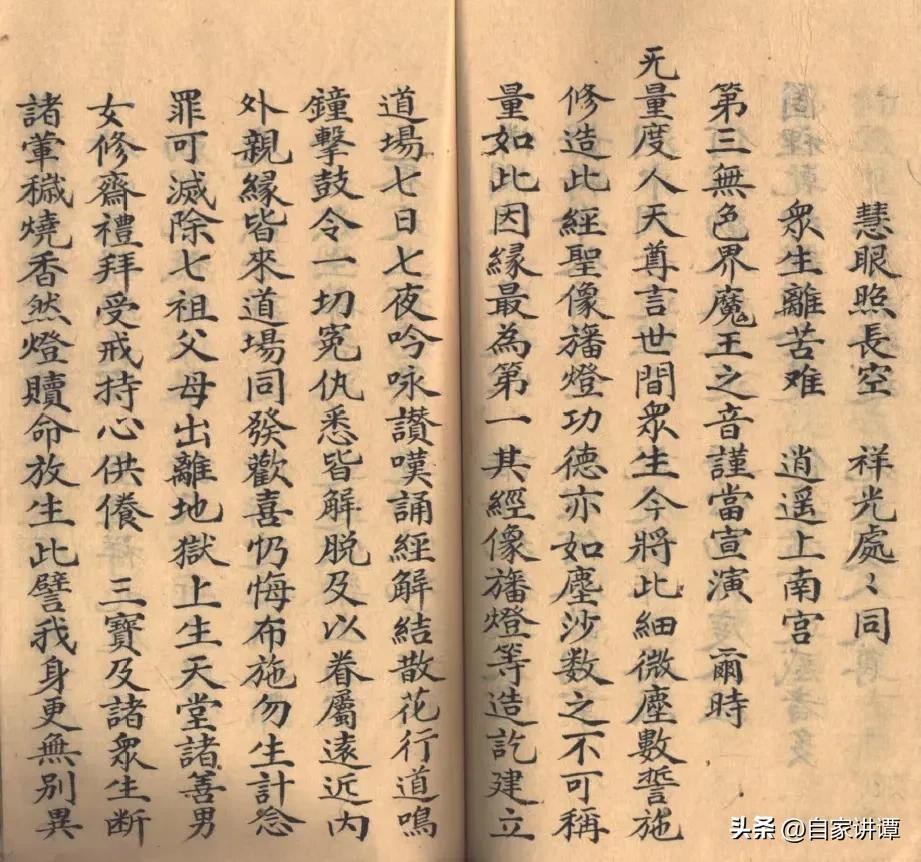 慧眼照長空　祥光處〻同
衆生離苦难　逍遥上南宫
第三無色界魔王之音謹當宣演　爾時
无量度人天尊言世間衆生今將此細微塵數誓施
修造此經聖像旛燈功德亦如塵沙数之不可稱
量如此因緣最為第一其經像旛燈等造訖建立
道場七日七夜吟咏讚嘆誦經解結散花行道鳴
鐘擊鼓令一切冤仇悉皆解脱及以眷屬遠近内
外親緣皆來道場同發歡喜忏悔布施勿生計念
罪可滅除七祖父母出離地獄上生天堂諸善男
女修齋禮拜受戒持心供養　三寶及諸衆生断
諸葷穢燒香然燈贖命放生此譬我身更無别異
头条 @自家讲谭